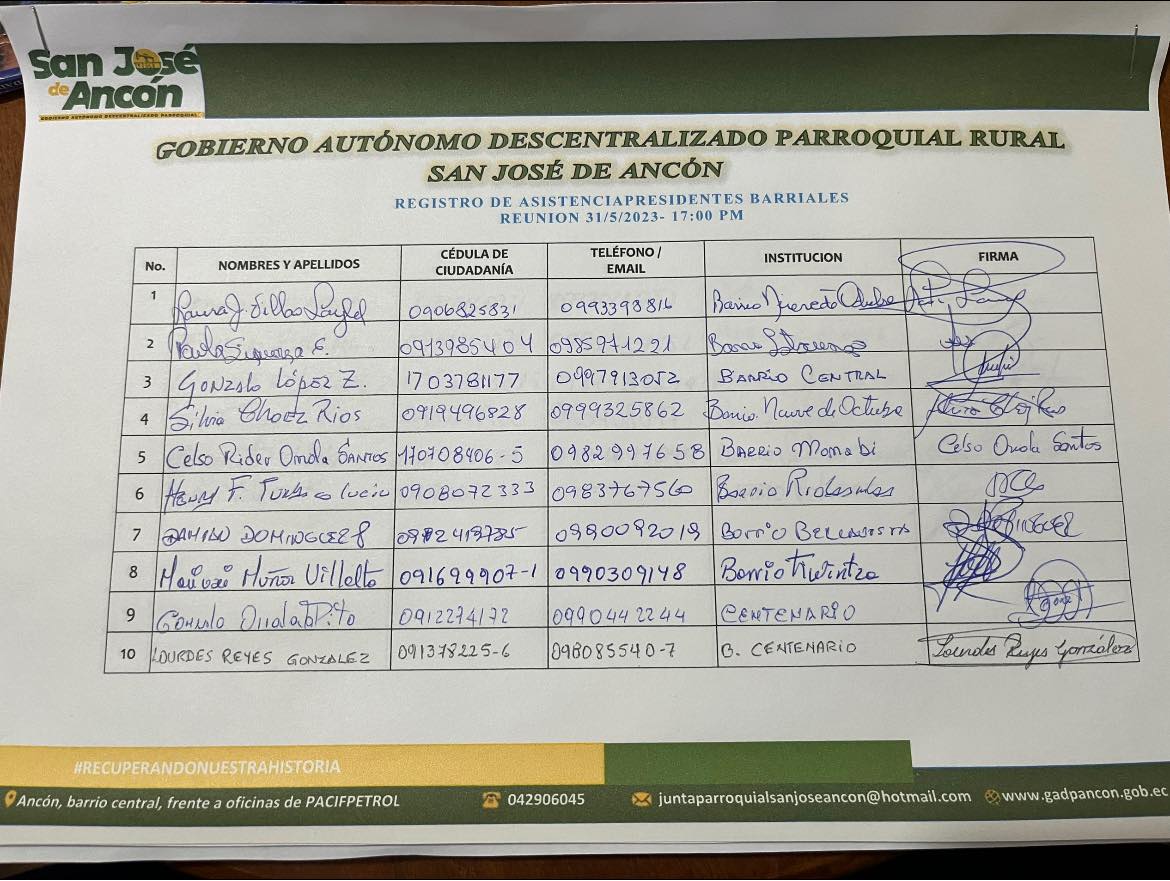 San José
de Ancón
GOBIERNO AUTÓNOMO DESCENTRALIZADO PARROQUIAL
GOBIERNO AUTÓNOMO DESCENTRALIZADO PARROQUIAL RURAL
SAN JOSÉ DE ANCÓN
REGISTRO DE ASISTENCIAPRESIDENTES BARRIALES
REUNION 31/5/2023- 17:00 PM
No. NOMBRES Y APELLIDOS CÉDULA DE CIUDADANÍA TELÉFONO / EMAIL INSTITUCION FIRMA
1 0906825831 0993398816 Barrio
2 Paula 0913985404 0985971221
3 GONZALO LÓPEZ Z. 1703781177 0997913052 BARRIO CENTRAL
4 Silvia Choez Rios 0919496828 0999325862 Barrio Nueve de Octubre
5 Celso Rider Orrala SANTOS 170708406-5 0982997658 BARRIO Celso Orrala Santos
6 HENRY F. 0908072333 0983767560 Barrio
7 DOMINGUEZ BARRIO BELLAVISTA
8 Muñoz Villalta 091699907-1 0990309148 Barrio
9 0912274172 0990442244 CENTENARIO
10 LOURDES REYES GONZALEZ 091378225-6 098085540-7 B. CENTENARIO Lourdes Reyes González
#RECUPERANDONUESTRAHISTORIA
Ancón, barrio central, frente a oficinas de PACIFPETROL 042906045 juntaparroquialsanjoseancon@hotmail.com www.gadpancon.gob.ec